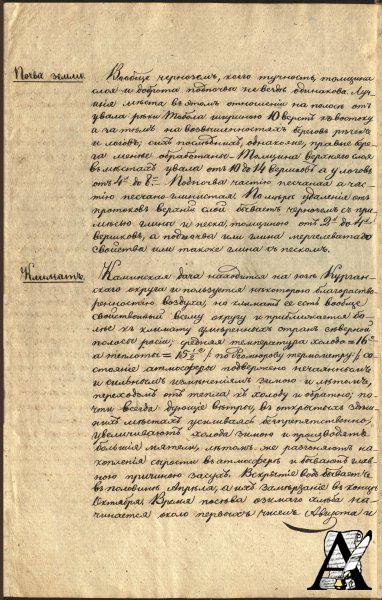 Почва земли. Вообще черноземъ, коего тучность, толщина
слоя и доброта подпочвы не вездѣ одинакова. Луч-
шія мѣста въ этомъ отношеніи на полосѣ отъ
увала рѣки Тобола шириною 10 верстъ къ востоку
а за тѣмъ на возвышенностяхъ береговъ рѣчекъ
и логовъ; ихъ послѣднихъ, однакоже, правые бере-
га менѣе обработаны. Толщина верхняго слоя
въ мѣстахъ увала отъ 10 до 14 вершковъ а у логовъ
отъ 4 до 8. Подпочва частію песчаная а час-
тію песчано глинистая. По мѣрѣ удаленія отъ
протоковъ верхній слой бываетъ черноземъ съ при-
мѣсью глины и песка, толщиною отъ 2 до 4
вершковъ, а подпочва или глина
свойства или такоже глина съ пескомъ.
Климатъ. Каминская дача находится на югѣ Курган-
скаго округа и пользуется нѣкоторою благораство-
ренностію воздуха, но климатъ ее есть вообще
свойственный всему округу и приближается бо-
лѣе къ климату умѣренныхъ странъ сѣверной
полосы россіи; средняя температура холода = 16°
а теплоте = 15 1/2° /по Реомюрову термометру/; со-
стояніе атмосферы подвержено нечаяннымъ
и сильнымъ измѣненіямъ зимою и лѣтомъ,
переходомъ отъ тепла къ холоду и обратно; по-
чти всегда дующіе вѣтры, въ открытыхъ здѣш-
нихъ мѣстахъ усиливаясь безпрепятственно,
увеличиваютъ холода зимою и производятъ
большія мятели, лѣтомъ же разгоняютъ на-
копленія сырости въ атмосферѣ и бываютъ глав-
ною причиною засухъ. Вскрытіе водъ бываетъ
въ половинѣ Апрѣля, а ихъ замерзаніе въ концѣ
Октября. Время посѣва озимаго хлѣба на-
чинается около первыхъ чиселъ Августа и